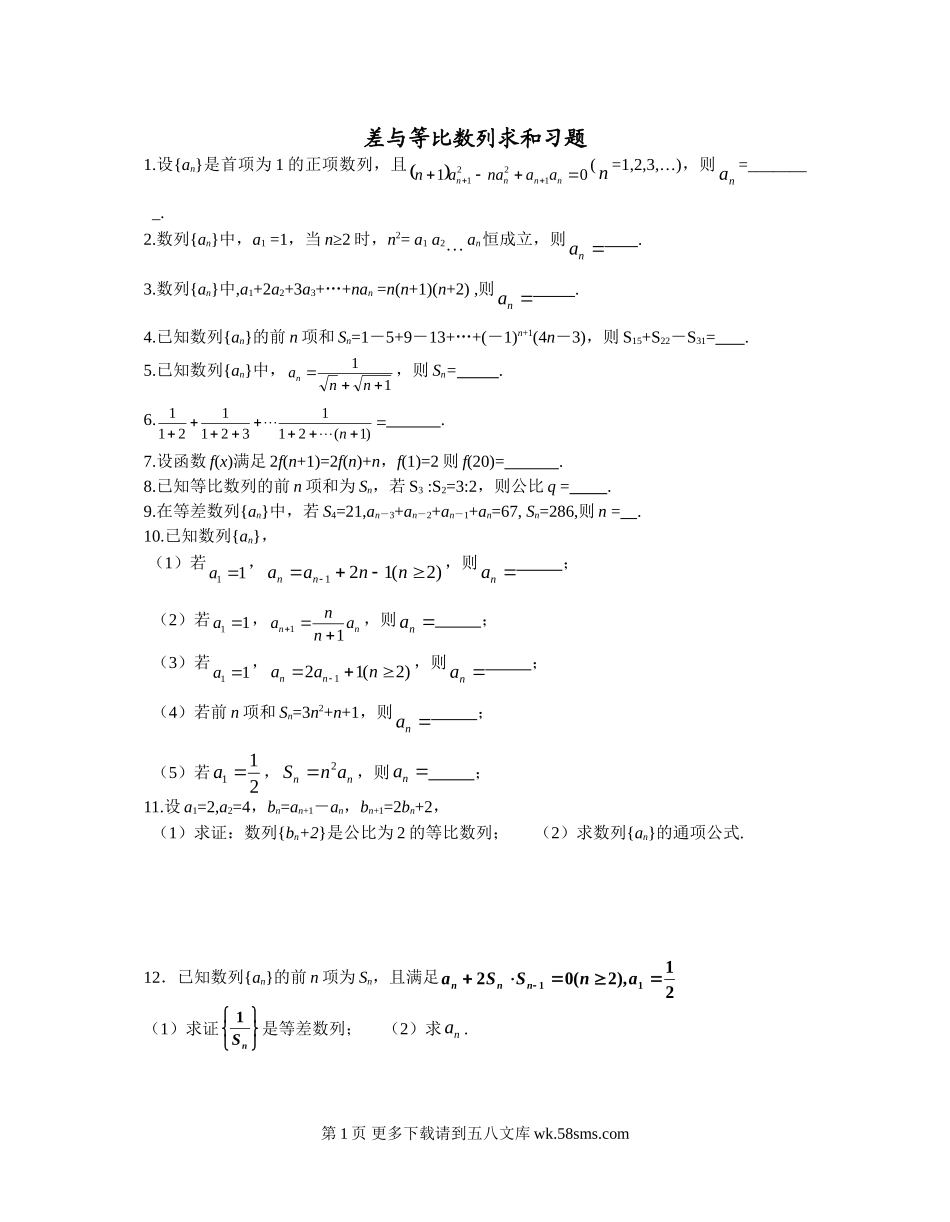 差与等比数列求和习题
1.设{aₙ}是首项为 1 的正项数列，且(n+1)a²ₙ₊₁- na²ₙ+aₙ₊₁aₙ=0( n =1,2,3,…)，则 aₙ =_______
_.
2.数列{aₙ}中，a₁ =1，当 n≥2 时，n²= a₁ a₂… aₙ恒成立，则 aₙ =____.
3.数列{aₙ}中,a₁+2a₂+3a₃+…+naₙ =n(n+1)(n+2) ,则 aₙ =_____.
4.已知数列{aₙ}的前 n 项和 Sₙ=1－5+9－13+…+(－1)ⁿ⁺¹(4n－3)，则 S₁₅+S₂₂－S₃₁=____.
5.已知数列{aₙ}中，aₙ=1/(√n+√(n+1))，则 Sₙ=_____.
6. 1/(1+2)+1/(1+2+3)+⋯1/(1+2+⋯(n+1))=_______.
7.设函数 f(x)满足 2f(n+1)=2f(n)+n，f(1)=2 则 f(20)=_______.
8.已知等比数列的前 n 项和为 Sₙ，若 S₃ :S₂=3:2，则公比 q =_____.
9.在等差数列{aₙ}中，若 S₄=21,aₙ₋₃+aₙ₋₂+aₙ₋₁+aₙ=67, Sₙ=286,则 n =__.
10.已知数列{aₙ}，
（1）若 a₁=1，aₙ=aₙ₋₁+2n-1(n≥2)，则 aₙ=_____；
（2）若 a₁=1，aₙ₊₁=n/(n+1) aₙ，则 aₙ=_____；
（3）若 a₁=1，aₙ=2aₙ₋₁+1(n≥2)，则 aₙ=_____；
（4）若前 n 项和 Sₙ=3n²+n+1，则 aₙ=_____；
（5）若 a₁=1/2，Sₙ=n²aₙ，则 aₙ=_____；
11.设 a₁=2,a₂=4，bₙ=aₙ₊₁－aₙ，bₙ₊₁=2bₙ+2，
（1）求证：数列{bₙ+2}是公比为 2 的等比数列； （2）求数列{aₙ}的通项公式.
12．已知数列{aₙ}的前 n 项为 Sₙ，且满足 aₙ+2Sₙ·Sₙ₋₁=0(n≥2),a₁=1/2
（1）求证{1/Sₙ}是等差数列； （2）求 aₙ .
第 1 页 更多下载请到五八文库 wk.58sms.com